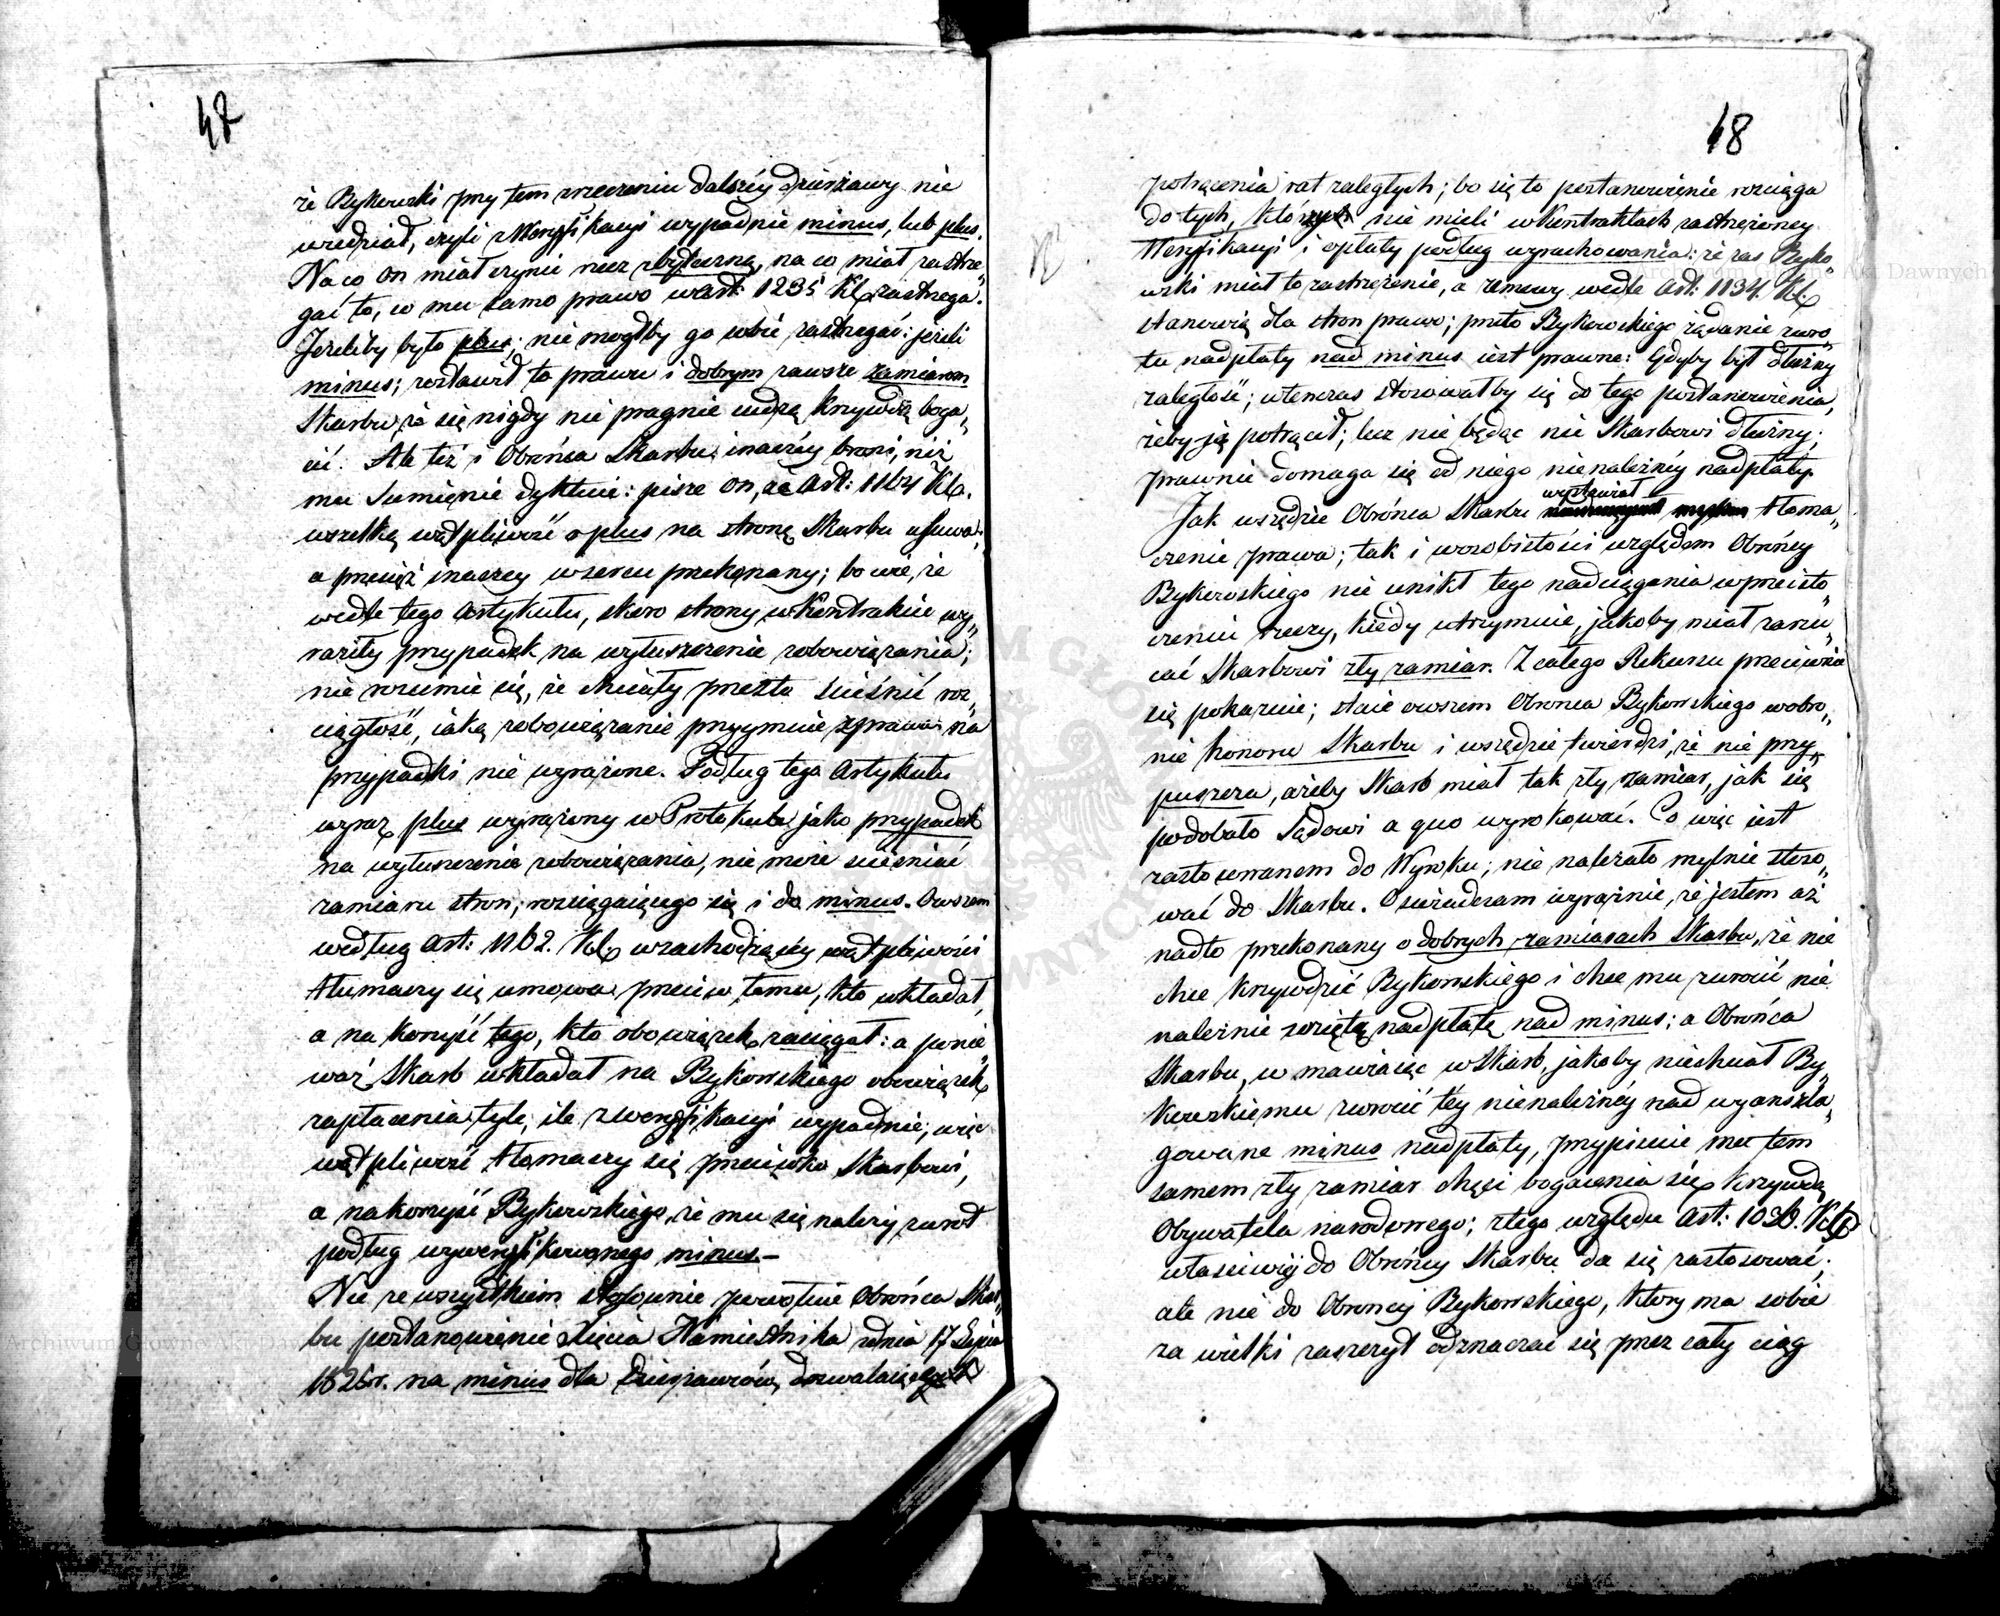 47
że Bykowski przy tem zrzeczeniu dalszéy dzierżawy nie
wiedział, czyli z Weryfikacyi wypadnie minus, lub plus.
Na co on miał czynić rzecz zbyteczną, na co miał zastrze„
gać to, co mu samo prawo w Art: 1235 KC zastrzega.
Jeżeliby było plus; nie mogłby go sobie zastrzegać: jeżeli
minus; zostawił to prawu i dobrym zawsze zamiarom
Skarbu, że się nigdy nie pragnie cudzą krzywdą boga„
cić. Ale też i Obrońca Skarbu inaczéy broni, niż
mu Sumienie dyktuie: pisze on, że Art: 1164 KC.
wszelką wątpliwość o plus na stronę Skarbu usuwa;
a przecież inaczey w sercu przekonany; bo wie, że
wedle tego Artykułu, skoro strony w Kontrakcie wy„
raziły przypadek na wytłuszczenie zobowiązania;
nie rozumie się, że chciały przezto ścieśnić roz„
ciągłość, iaką zobowiązanie przyymuie z prawa na
przypadki nie wyrażone. Podług tego Artykułu
wyraz plus wyrażony w Protokule jako przypadek
na wytłuszczenie zobowiązania, nie może ścieśniać
zamiaru stron, rozciągaiącego się i do minus. Owszem
według Art: 1162. KC w zachodzącéy wątpliwości
tłumaczy się umowa przeciw temu, kto wkładał,
a na korzyść tego, kto obowiązek zaciągał: a ponie„
waż Skarb wkładał na Bykowskiego obowiązek
zapłacenia tyle, ile z weryfikacyi wypadnie, więc
wątpliwość tłomaczy się przeciwko Skarbowi,
a na korzyść Bykowskiego, że mu się należy zwrot
podług wyweryfikowanego minus.—
Nie ze wszystkiem stosownie powołuie Obrońca Skar„
bu postanowienie Xięcia Namiestnika z dnia 17 Lipca
1826 r. na minus dla Dzierżawców dozwalaiące
48
potrącenia rat zaległych; bo się to postanowienie rozciąga
do tych, którzy nie mieli w Kontraktach zastrzeżoney
Weryfikacyi i opłaty podług wyrachowania: że zaś Byko„
wski miał to zastrzeżenie, a umowy wedle Art: 1134. KC
stanowią dla stron prawo; przeto Bykowskiego żądanie zwro„
tu nadpłaty nad minus iest prawne: Gdyby był dłużny
zaległość; wtenczas stosowałby się do tego postanowienia,
żeby ją potrącił; lecz nie będąc nic Skarbowi dłużny;
prawnie domaga się od niego nienależnéy nadpłaty.
Jak wszędzie Obrońca Skarbu wystawiał tłoma„
czenie prawa; tak i w osobistości względem Obrońcy
Bykowskiego nie unikł tego naciągania w przeisto„
czeniu rzeczy, kiedy utrzymuie, jakoby miał zarzu„
cać Skarbowi zły zamiar. Z całego Rekursu przeciwnie
się pokazuie; staie owszem Obrońca Bykowskiego w obro„
nie honoru Skarbu i wszędzie twierdzi, że nie przy„
puszcza, ażeby Skarb miał tak zły zamiar, jak się
podobało Sądowi a quo wyrokować. Co więc iest
zastosowanem do Wyroku; nie należało mylnie stoso„
wać do Skarbu. Oświadczam wyraźnie, że jestem aż
nadto przekonany o dobrych zamiarach Skarbu, że nie
chce krzywdzić Bykowskiego i chce mu zwrócić nie
należnie wziętą nadpłatę nad minus; a Obrońca
Skarbu, wmawiaiąc w Skarb, jakoby niechciał By„
kowskiemu zwrócić téy nienależnéy nad wyanszla„
gowane minus nadpłaty, przypisuie mu tem
samem zły zamiar chęci bogacenia się krzywdą
Obywatela narodowego; z tego względu Art: 1036. KPC
właściwiéy do Obrońcy Skarbu da się zastosować;
ale nie do Obrońcy Bykowskiego, który ma sobie
za wielki zaszczyt odznaczać się przez cały ciąg